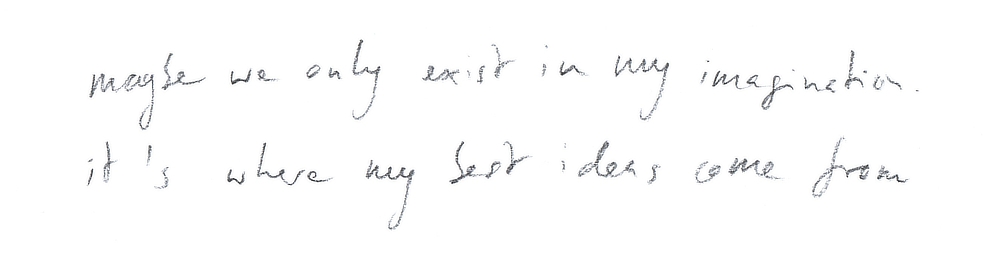 maybe we only exist in my imagination.
it's where my best ideas come from